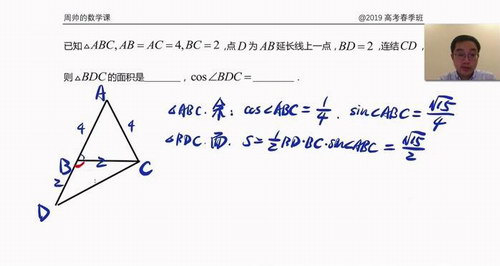 周帅的数学课
@2019 高考春季班
已知△ABC, AB = AC = 4, BC = 2 ,点 D 为 AB 延长线上一点 , BD = 2 ,连结 CD ,
则 △BDC 的面积是_______ , cos∠BDC = ________ .
A
4 4
B 2 C
2
D
△ABC. 余: cos∠ABC = 1/4 . sin∠ABC = √15/4
△BDC. 面. S = 1/2 BD·BC·sin∠ABC = √15/2